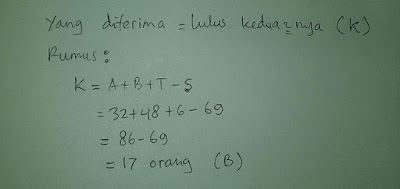 Yang diterima = lulus kedua2nya (K)
Rumus :
K = A+B+T-S
= 32+48+6-69
= 86-69
= 17 orang (B)